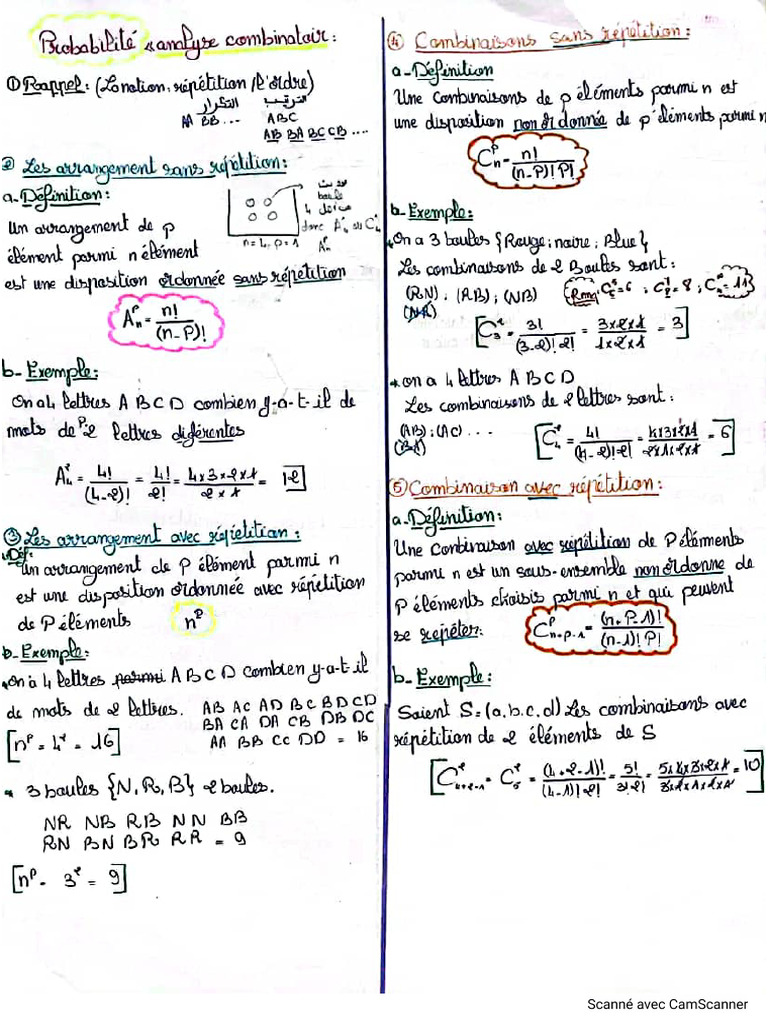 Probabilité « analyse combinatoir :
① Rappel : (La notion, répétition / l'ordre)
التكرار الترتيب
AA BB ... ABC
AB BA BC CB ....
② Les arrangement sans répétition :
a - Définition :
boule
4
donc A¹₄ ou C¹₄
n = 4, p = 1 Aᵖₙ
Un arrangement de p
élément parmi n élément
est une disposition ordonnée sans répétition
Aᵖₙ = n! / (n - P)!
b - Exemple :
On a 4 lettres A B C D combien y-a-t-il de
mots de 2 lettres différentes
A²₄ = 4! / (4-2)! = 4! / 2! = 4x3x2x1 / 2x1 = 12
③ Les arrangement avec répétition :
Déf :
Un arrangement de P élément parmi n
est une disposition ordonnée avec répétition
de P éléments nᵖ
b - Exemple :
On a 4 lettres parmi A B C D combien y-a-t-il
de mots de 2 lettres. AB AC AD BC BD CD
BA CA DA CB DB DC
[nᵖ = 4² = 16] AA BB CC DD = 16
3 boules {N, R, B} 2 boules.
NR NB RB NN BB
RN BN BR RR = 9
[nᵖ - 3² = 9]
④ Combinaisons sans répétition :
a - Définition
Une combinaisons de p éléments parmi n est
une disposition non ordonnée de p éléments parmi n
Cᵖₙ = n! / (n - P)! P!
b - Exemple :
On a 3 boules {Rouge ; noire ; Blue}
Les combinaisons de 2 Boules sont :
(RN) ; (RB) ; (NB)
(NR)
[C²₃ = 3! / (3-2)! 2! = 3x2x1 / 1x2x1 = 3]
on a 4 lettres A B C D
Les combinaisons de 2 lettres sont :
(AB) ; (AC) ...
(BA)
[C²₄ = 4! / (4-2)! 2! = 4x3x2x1 / 2x1x2x1 = 6
⑤ Combinaison avec répétition :
a - Définition :
Une Combinaison avec répétition de P éléments
parmi n est un sous-ensemble non ordonné de
P éléments choisis parmi n et qui peuvent
se répéter. Cᵖₙ₊ₚ₋₁ = (n+P-1)! / (n-1)! P!
b - Exemple :
Soient S = (a, b, c, d) Les combinaisons avec
répétition de 2 éléments de S
[C²₄₊₂₋₁ = C²₅ = (4+2-1)! / (4-1)! 2! = 5! / 3! 2! = 5x4x3x2x1 / 3x2x1x2x1 = 10]
Scanné avec CamScanner